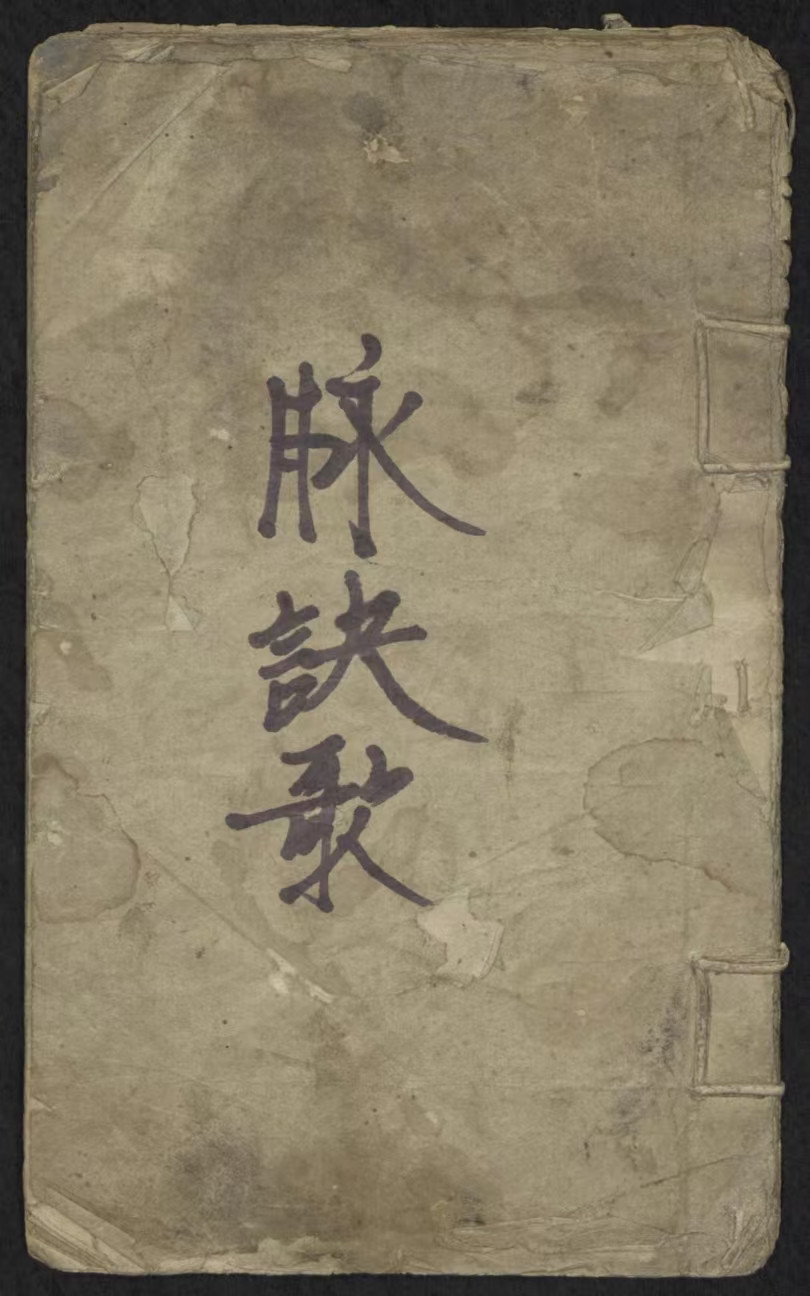 脉訣歌